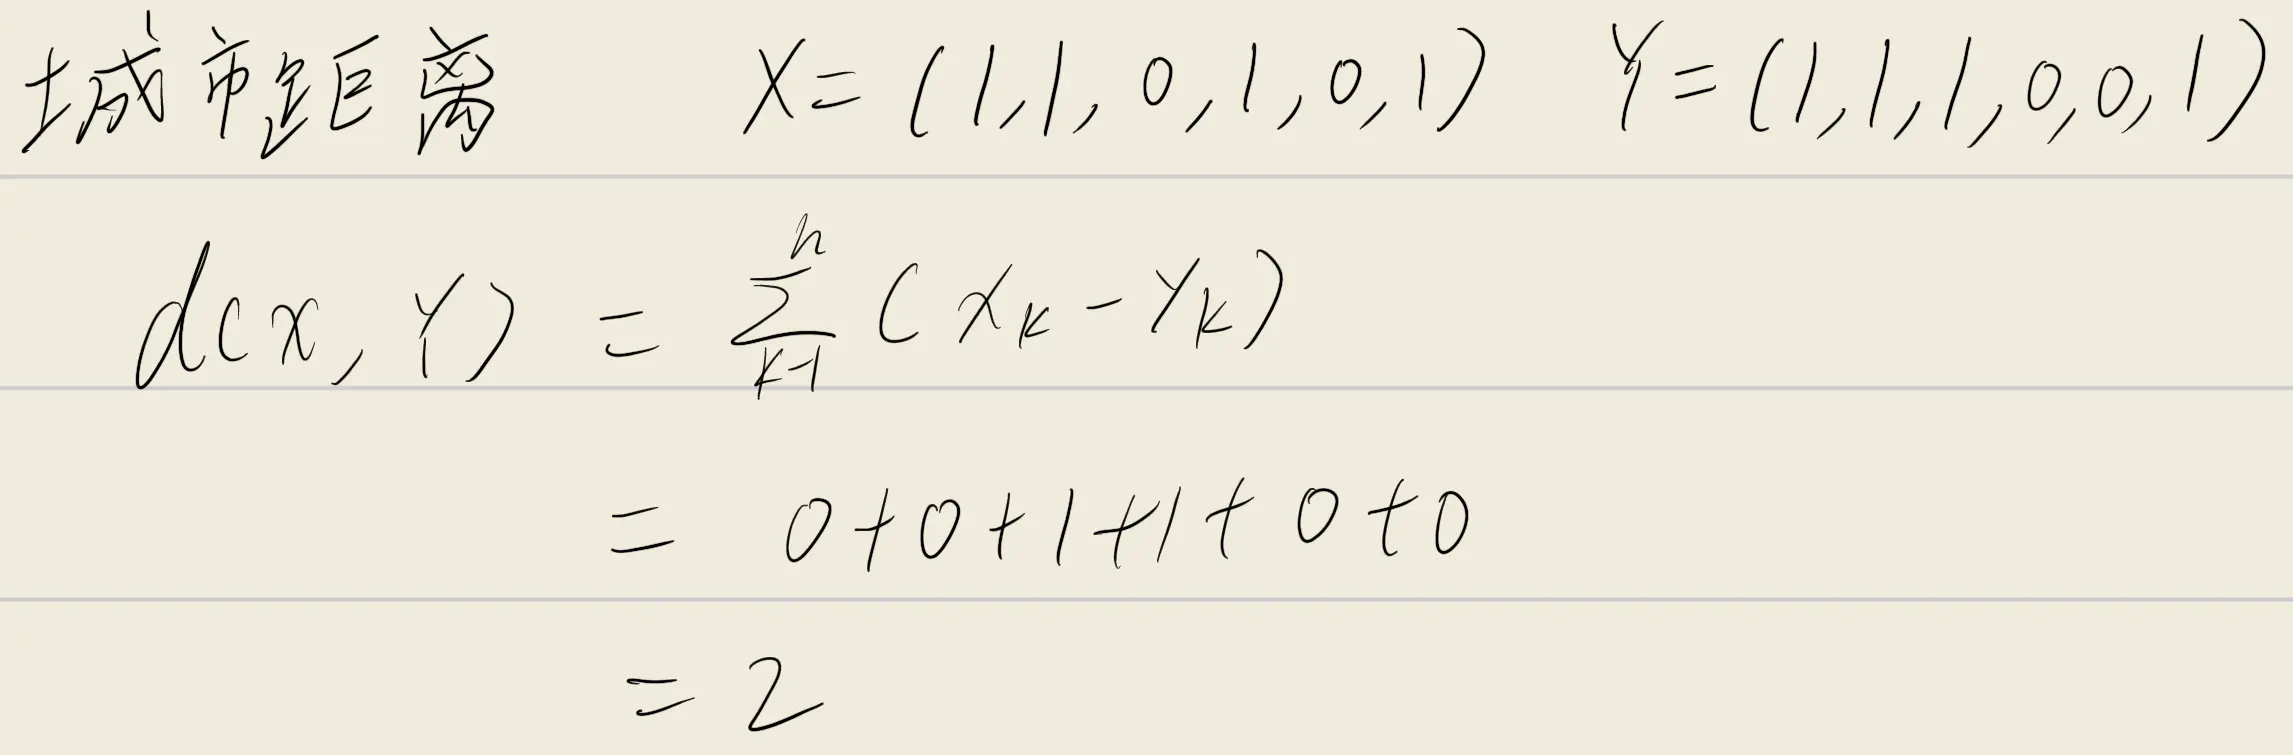 城市距离 X=(1,1,0,1,0,1) Y=(1,1,1,0,0,1)
d(x,Y) = ∑ₖ₌₁ⁿ (xₖ-Yₖ)
= 0+0+1+1+0+0
= 2